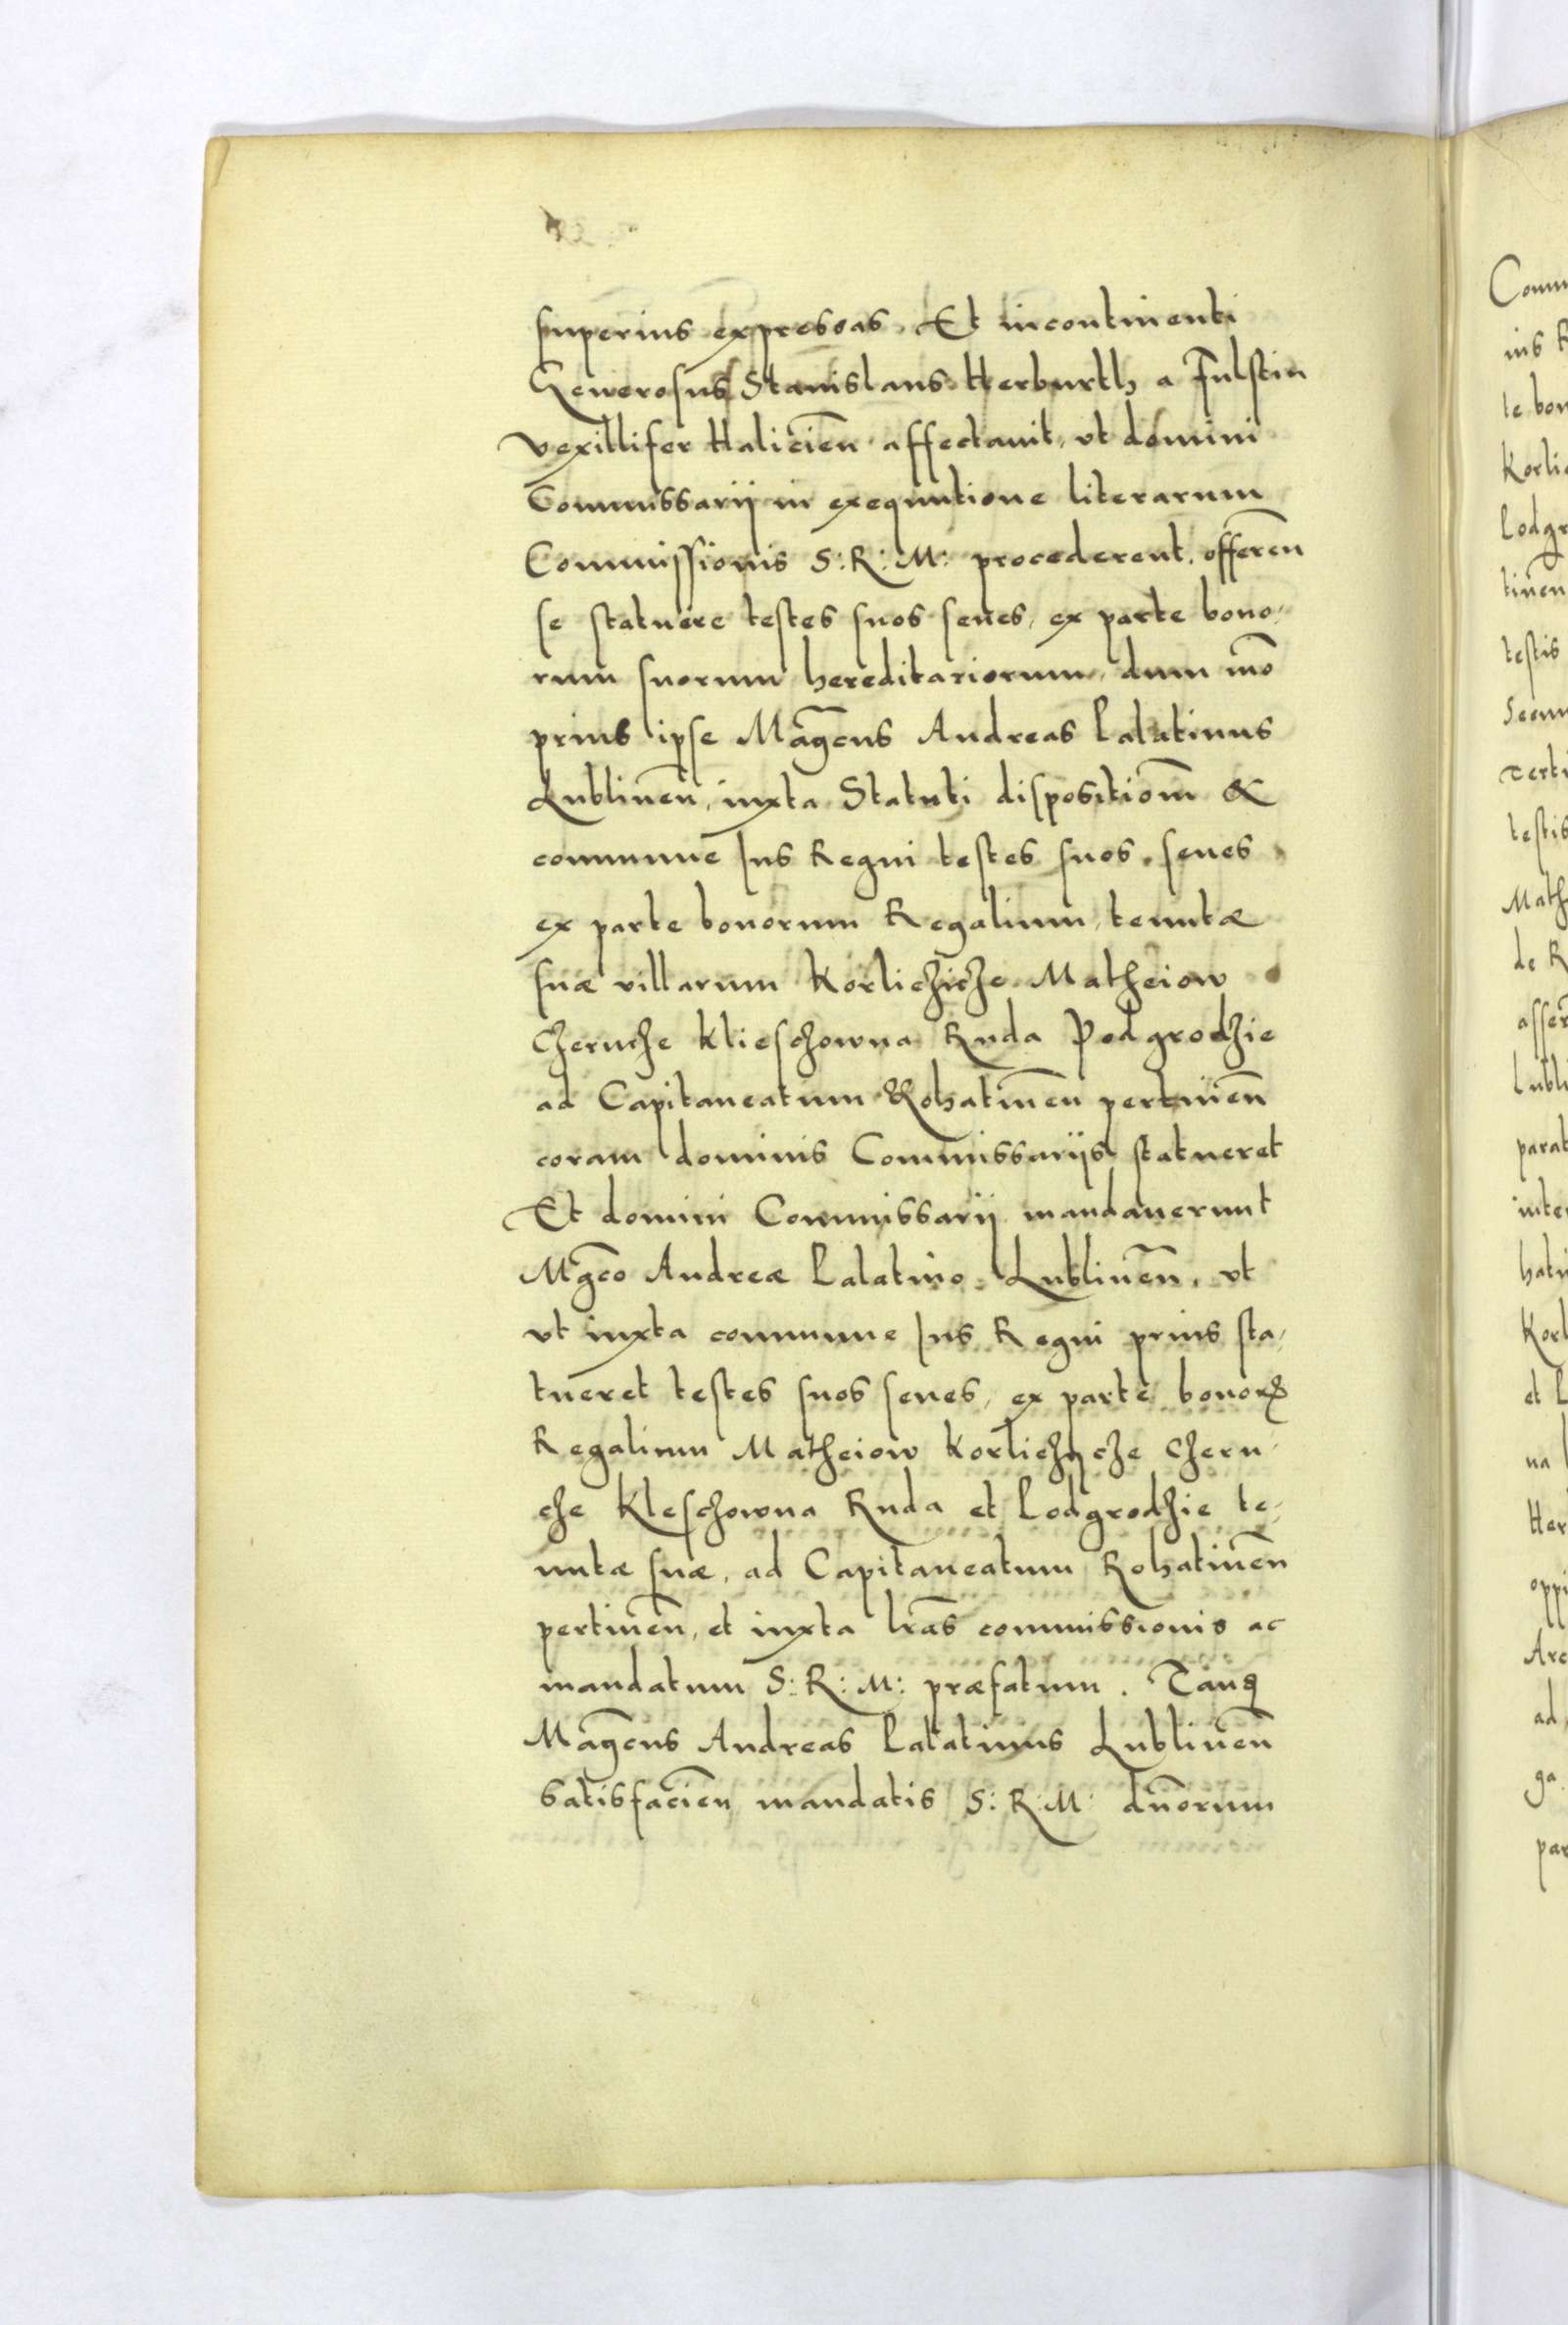 superius expressas. Et incontinenti
Generosus Stanislaus Herburth a Fulstin
vexillifer Halicień affectauit, vt domini
Commissarij in exequutione literarum
Commissionis S: R: M: procederent. offereń
se statuere testes suos senes, ex parte bono,
rum suorum hereditariorum, dum mō
prius ipse Magc̄us Andreas Palatinus
Lublineń, iuxta Statuti dispositiom̄ &
commune Ius Regni testes suos senes
ex parte bonorum Regalium, tenutæ
suæ villarum Korlichiche Matheiow
Cheruche Klieschowna Ruda Podgrodzie
ad Capitaneatum Rohatineń pertineń
coram dominis Commissarijs statueret
Et domini Commissarij mandauerunt
Mgc̄o Andreæ Palatino Lublineń. vt
vt iuxta commune Ius Regni prius sta,
tueret testes suos senes, ex parte bonoꝝ
Regalium Matheiow Korlichyche Cheru,
che Kleschowna Ruda et Podgrodzie te,
nutæ suæ, ad Capitaneatum Rohatineń
pertineń, et iuxta lrās commissionis ac
mandatum S: R: M: præfatum. Tanꝗ
Magc̄us Andreas Palatinus Lublineń
satisfacień mandatis S: R: M: dn̄orum